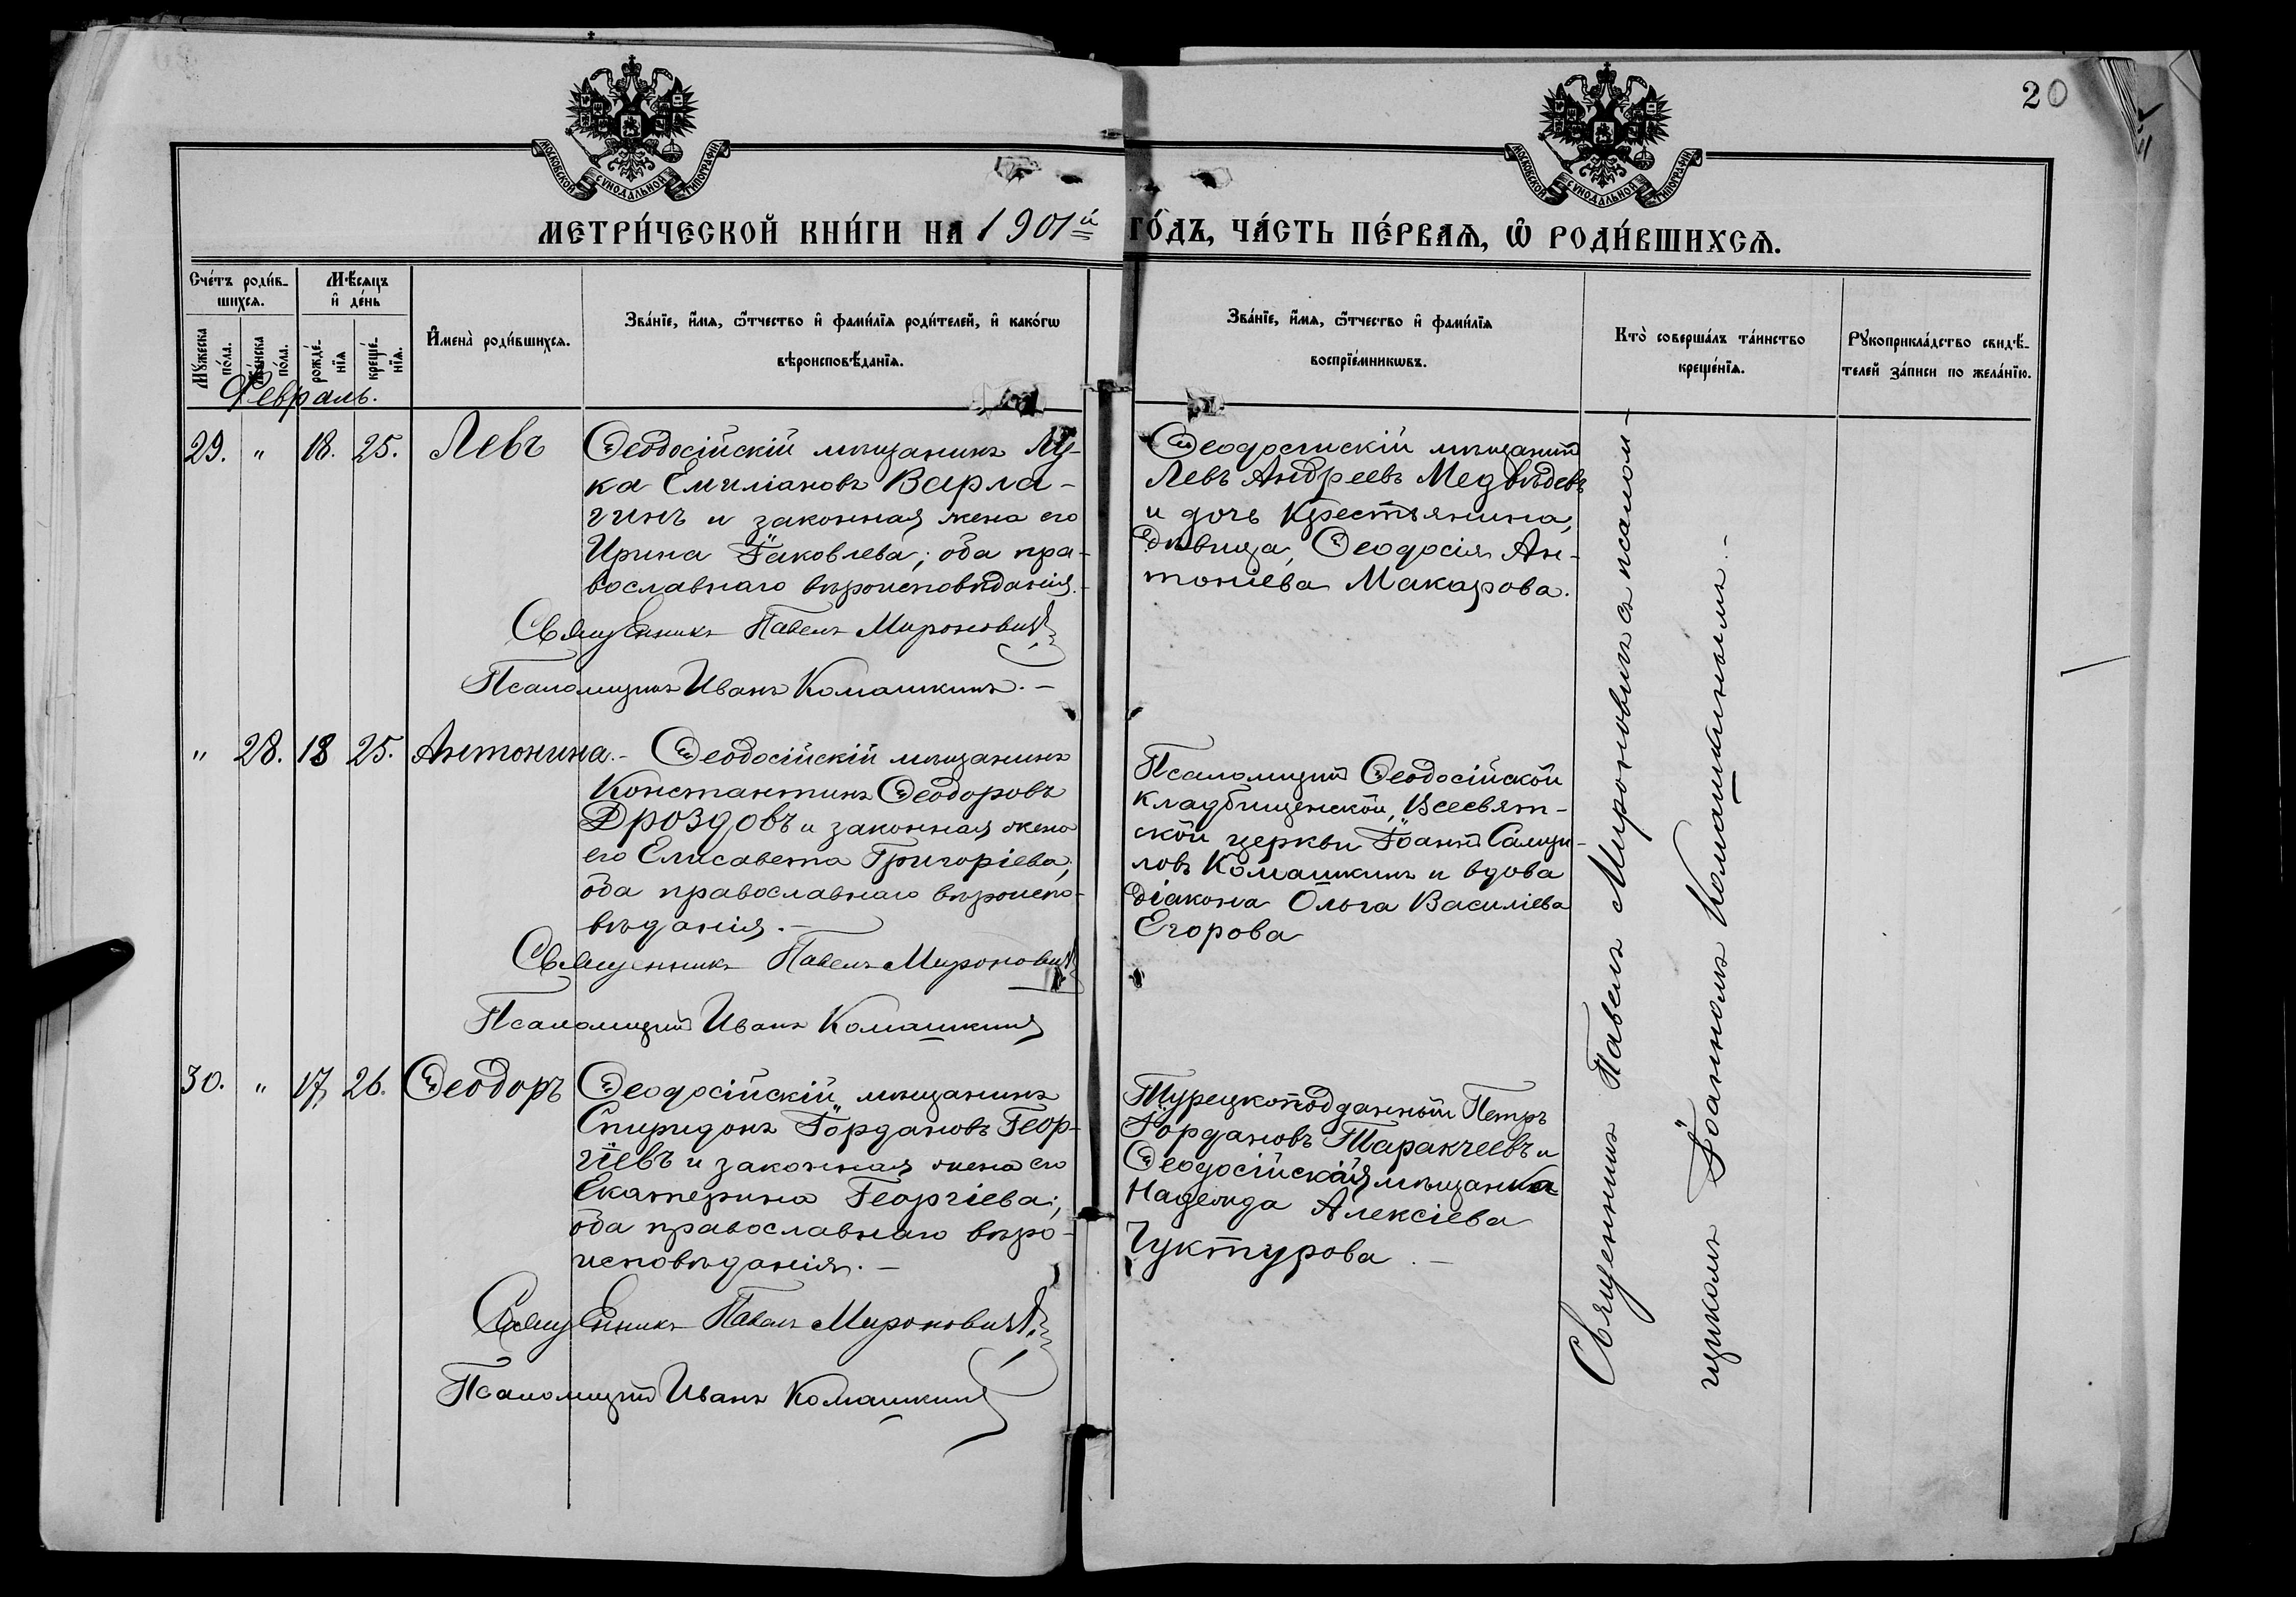 20
МОСКОВСКОЙ СѴНОДАЛЬНОЙ ТИПОГРАФІИ
МОСКОВСКОЙ СѴНОДАЛЬНОЙ ТИПОГРАФІИ
МЕТРИ́ЧЕСКОЙ КНИ́ГИ НА 1901й ГО́ДЪ, ЧА́СТЬ ПЕ́РВАѦ, Ѽ РОДИ́ВШИХСѦ.
Сче́тъ роди́в-
шихсѧ.
Мꙋ́жеска по́ла.
Же́нска по́ла.
Мѣ́сѧцъ
и҆ де́нь
рожде́-
нїѧ
креще́-
нїѧ.
И҆мена̀ роди́вшихсѧ.
Зва́нїе, и҆́мѧ, ѻ҆́тчество и҆ фами́лїѧ роди́телей, и҆ како́гѡ
вѣроисповѣ́данїѧ.
Зва́нїе, и҆́мѧ, ѻ҆́тчество и҆ фами́лїѧ
воспрїе́мникѡвъ.
Кто̀ соверша́лъ та́инство
креще́нїѧ.
Рꙋкоприкла́дство свидѣ́-
телей за́писи по жела́нїю.
Февраль.
29. " 18. 25. Левъ
Ѳеодосійскій мѣщанинъ Лу-
ка Емиліановъ Варла-
гинъ и законная жена его
Ирина Іаковлева; оба пра-
вославнаго вѣроисповѣданія.
Священникъ Павелъ Мироновичъ
Псаломщикъ Иванъ Комашкинъ.-
Ѳеодосійскій мѣщанинъ
Левъ Андреевъ Медвѣдевъ
и дочь крестьянина,
дѣвица, Ѳеодосія Ан-
тоніева Макарова.
" 28. 18 25. Антонина.-
Ѳеодосійскій мѣщанинъ
Константинъ Ѳеодоровъ
Дроздовъ и законная жена
его Елисавета Григоріева;
оба православнаго вѣроиспо-
вѣданія.-
Священникъ Павелъ Мироновичъ
Псаломщикъ Иванъ Комашкинъ
Псаломщикъ Ѳеодосійской
кладбищенской, Всесвят-
ской церкви Іоаннъ Самуи-
ловъ Комашкинъ и вдова
діакона Ольга Василіева
Егорова
30. " 17, 26. Ѳеодоръ
Ѳеодосійскій мѣщанинъ
Спиридонъ Іордановъ Геор-
гіевъ и законная жена его
Екатерина Георгіева;
оба православнаго вѣро-
исповѣданія.-
Священникъ Павелъ Мироновичъ
Псаломщикъ Иванъ Комашкинъ
Турецкоподданный Петръ
Іордановъ Таракчеевъ и
Ѳеодосійская мѣщанка
Надежда Алексіева
Чуктурова.-
Священникъ Павелъ Мироновичъ съ псалом-
щикомъ Іоанномъ Комашкинымъ.-